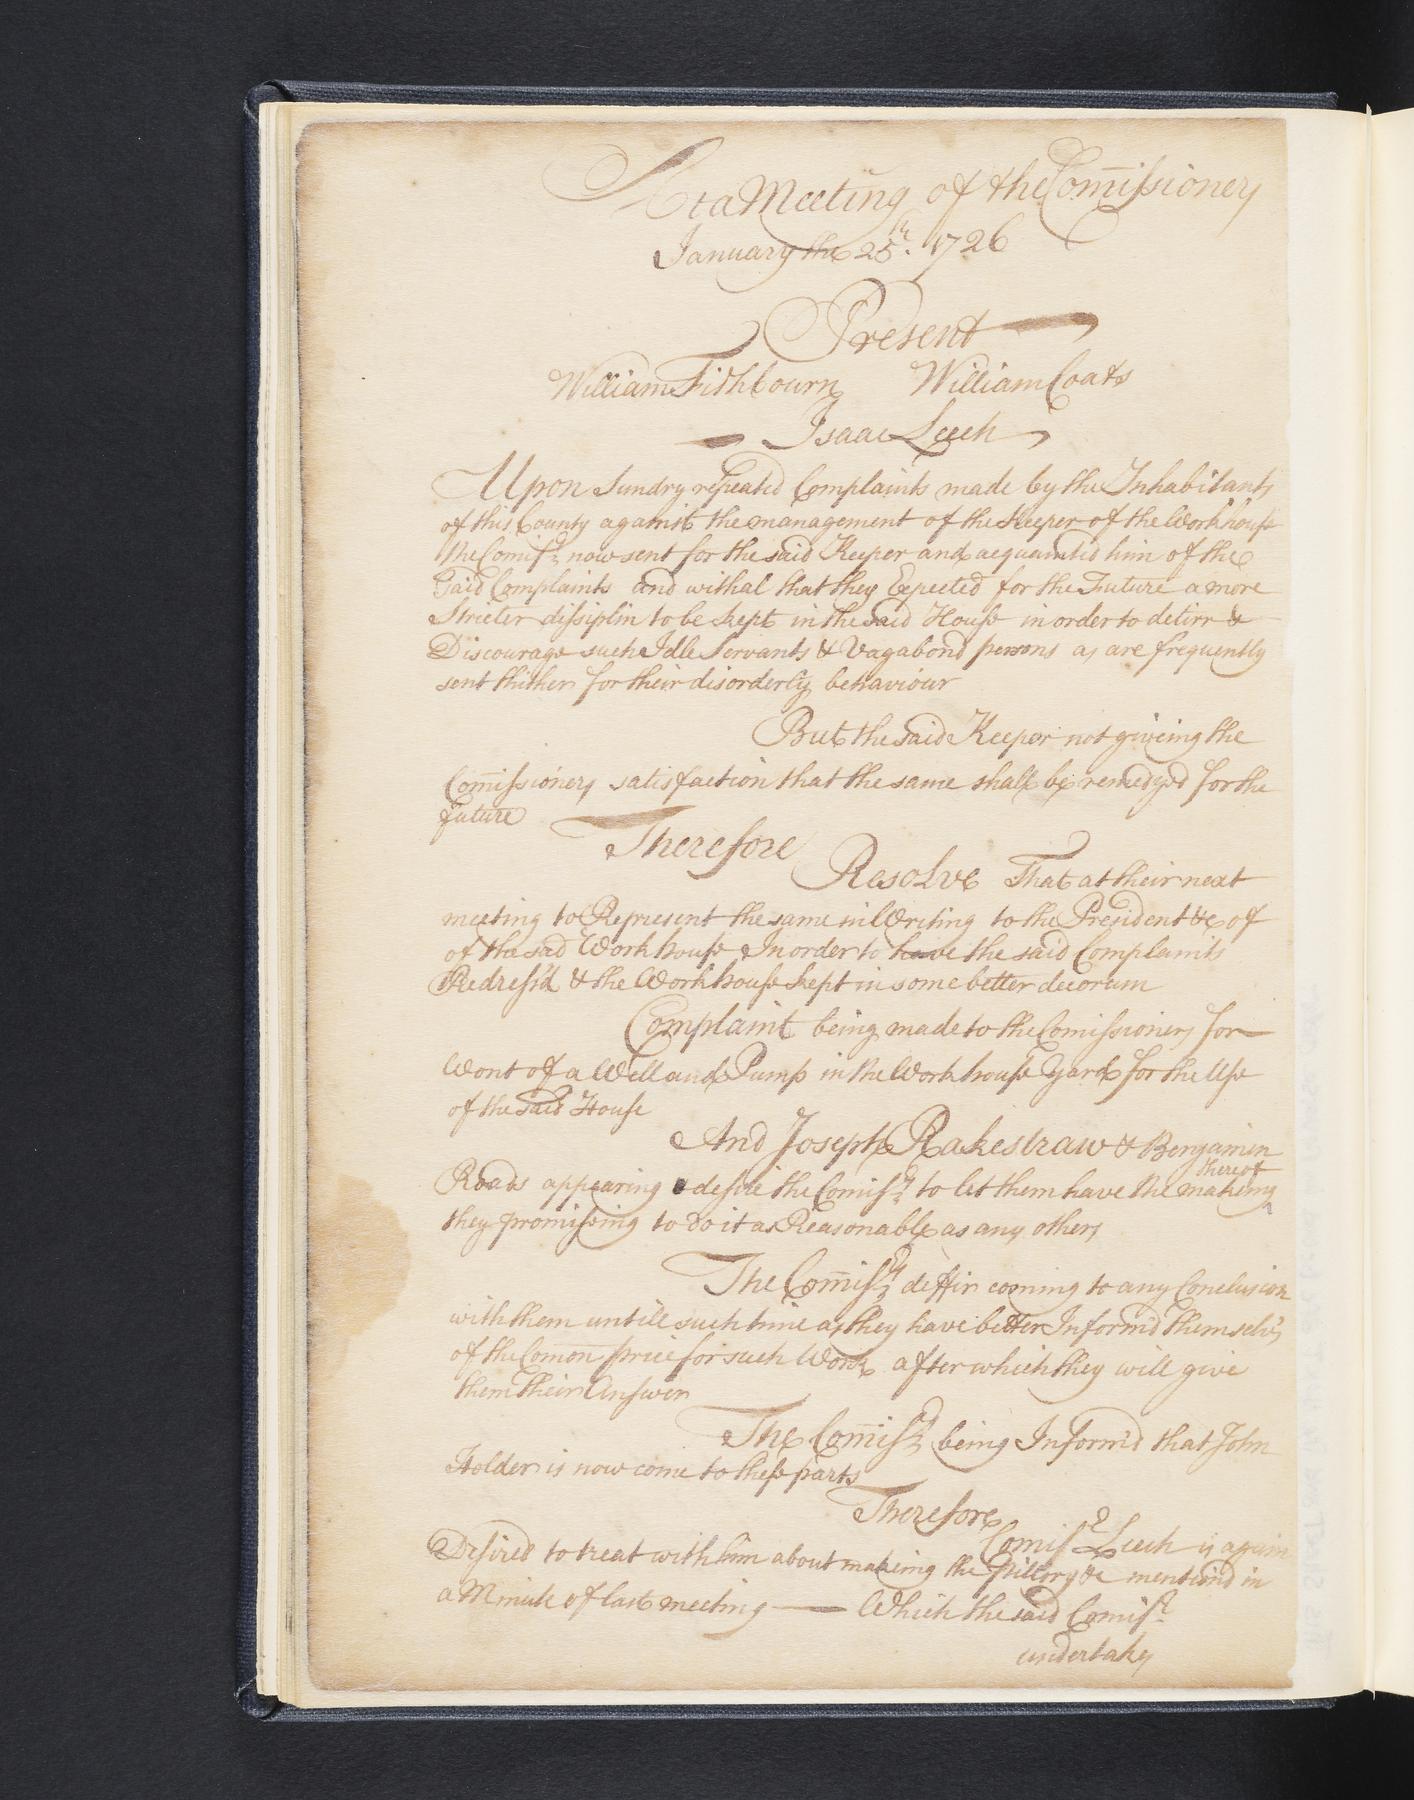 At a Meeting of the Com̄issioners
January the 25th. 1726
Present
William Fishbourn William Coats
Isaac Leech
Upon Sundry repeated Complaints made by the Inhabitants
of this County against the management of the Keeper of the Workhouse
the Comissrs now sent for the said Keeper and acquainted him of the
Said Complaints and withal that they Expected for the Future a more
Stricter dissiplin to be kept in the said House in order to deterr &
Discourage such Idle Servants & Vagabond persons as are frequently
sent thither for their disorderly behaviour
But the said Keeper not giveing the
Com̄issioners satisfaction that the same shall be remedyed for the
future
Therefore
Resolve That at their next
meeting to Represent the same in Writing to the President &c of
of the sad Workhouse In order to have the said Complaints
Redress'd & the Workhouse kept in some better decorum
Complaint being made to the Comissioners for
Wont of a Well and Pump in the Workhouse Yard for the Use
of the said House
And Joseph Rakestraw & Benjamin
Roads appearing & desire the Comissrs to let them have the making thereof
they promissing to do it as Reasonable as any others
The Com̄issrs deffir coming to any Conclusion
with them untill such time as they have better Inform'd themselvs
of the Comon price for such Work after which they will give
them their Answer
The Com̄issrs being Inform'd that John
Holder is now come to these parts
Therefore
Comissr Leech is again
Desired to treat with him about making the Pillory &c mentiond in
a Minute of last meeting — Which the said Comissr
undertakes